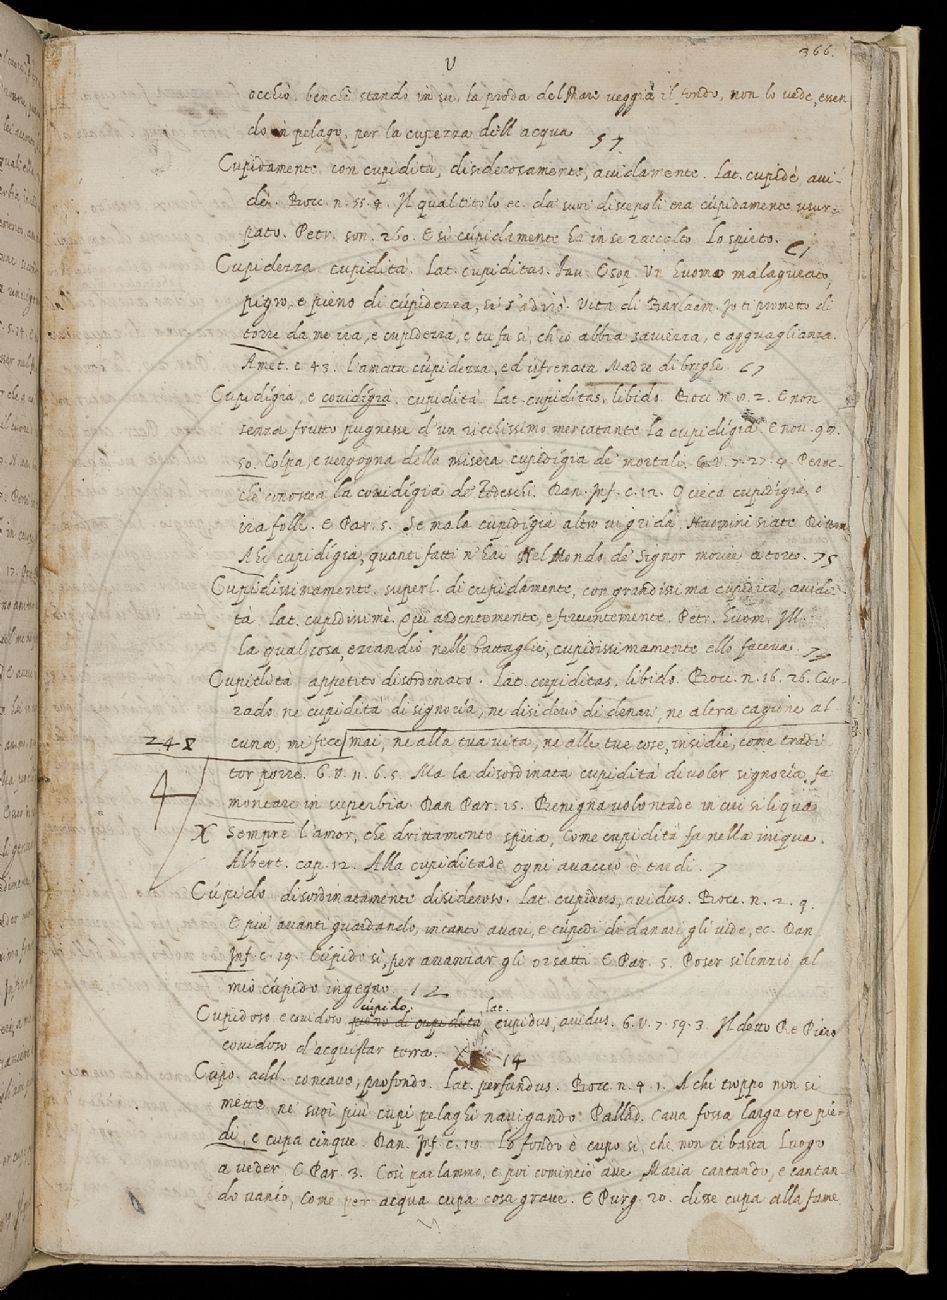 366.
V
occhio. benchè stando in su la proda del Mare veggia il fondo, non lo vede, essen
do in pelago, per la cupezza dell acqua 57.
Cupidamente con cupidità, disiderosamente, avidamente. Lat. cupidè avi-
dè. Bocc. n. 55. 4. Il qual titolo ec. da suoi discepoli era cupidamente usur-
pato. Petr. son. 260. E si cupidamente ha in se raccolto Lo spirto. 61
Cupidezza cupidità. Lat. cupiditas. Fav. Esop. Un huomo malagurato,
pigro, e pieno di cupidezza, si s'advió. Vita di Barlaam. Io ti prometto di
torre da me ira, e cupidezza, e tu fa si, ch'io abbia saviezza, e agguaglianza.
Amet. c. 43. L'amata cupidezza, ed isfrenata Madre di brighe. 67
Cupidígia, e covidígia. cupidità Lat. cupiditas, libido. Bocc. n. 8. 2. E non
senza frutto pugnesse d'un ricchissimo mercatante la cupidígia. E nov. 98.
50. Colpa, e vergogna della misera cupidígia de mortali. G.V. 7. 27. 4. Peroc-
chè conoscea la covidígia de Todeschi. Dan. Inf. c. 12. O cieca cupidígia, o
ira folle. E Par. 5. Se mala cupidígia altro vi grida, Huomini siate Petrar.
Ahi cupidígia, quanti fatti n'hai Nel Mondo de Signor morire a torto. 75
Cupidissimamente. superl. di cupidamente, con grandissima cupidità, avidi-
tà. Lat. cupidissimè. Qui ardentemente, e ferventemente. Petr. huom. Ill.
la qual cosa, eziandio nelle battaglie, cupidissimamente ello faceva. 79
Cupidità appetito disordinato. Lat. cupiditas, libido. Bocc. n. 16. 26. Cur-
rado ne cupidità di signoria, ne disiderio di denari, ne altra cagione al
248 cuna, mi fece mai, ne alla tua vita, ne alle tue cose, insidie, come tradi
tor porre. G.V. n. 6. 5. Ma la disordinata cupidità di voler signoria, fa
4 montare in superbia Dan Par. 15. Benigna volontade in cui si liqua
X Sempre l'amor, che drittamente spira, Come cupidità fa nella iniqua.
Albert. cap. 12. Alla cupiditade ogni avaccio è tardi. 7
Cúpido disordinatamente disideroso. Lat. cupidus, avidus. Bocc. n. 2. 9.
E più avanti guardando, in tanto avari, e cúpidi di danari gli vide, ec. Dan
Inf. c. 19. Cupido si, per avanzar gli orsatti E Par. 5. Poser silenzio al
mio cúpido ingegno. 12
cúpido, lat.
Cupidoso. e covidoso pieno di cupidità, cupidus, avidus. G.V. 7. 59. 3. Il detto Re Piero
covidoso d'acquistar terra. 14
Cupo. add. concavo, profondo. Lat. perfundus. Bocc. n. 4. 1. A chi troppo non si
mette ne suoi più cupi pelaghi navigando Pallad. Cava fossa langa tre pie-
di, e cupa cinque. Dan. Inf. c. 18. Lo fondo è cupo si, che non ci basta Luogo
a veder E Par. 3. Così parlammo, e poi cominciò ave Maria cantando, e cantan-
do vanío, Come per acqua cupa cosa grave. E Purg. 20. disse cupa alla fame